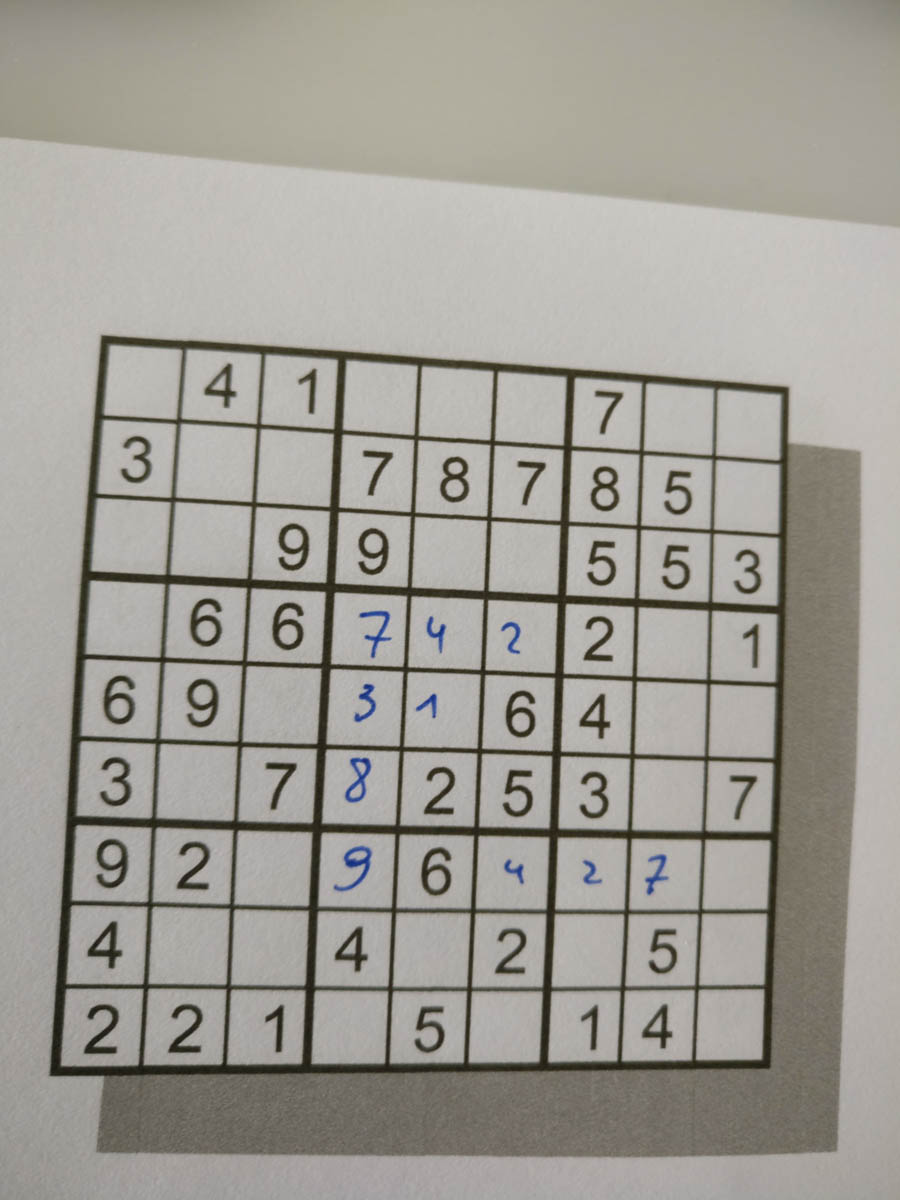 4 1 7
3 7 8 7 8 5
9 9 5 5 3
6 6 7 4 2 2 1
6 9 3 1 6 4
3 7 8 2 5 3 7
9 2 9 6 4 2 7
4 4 2 5
2 2 1 5 1 4